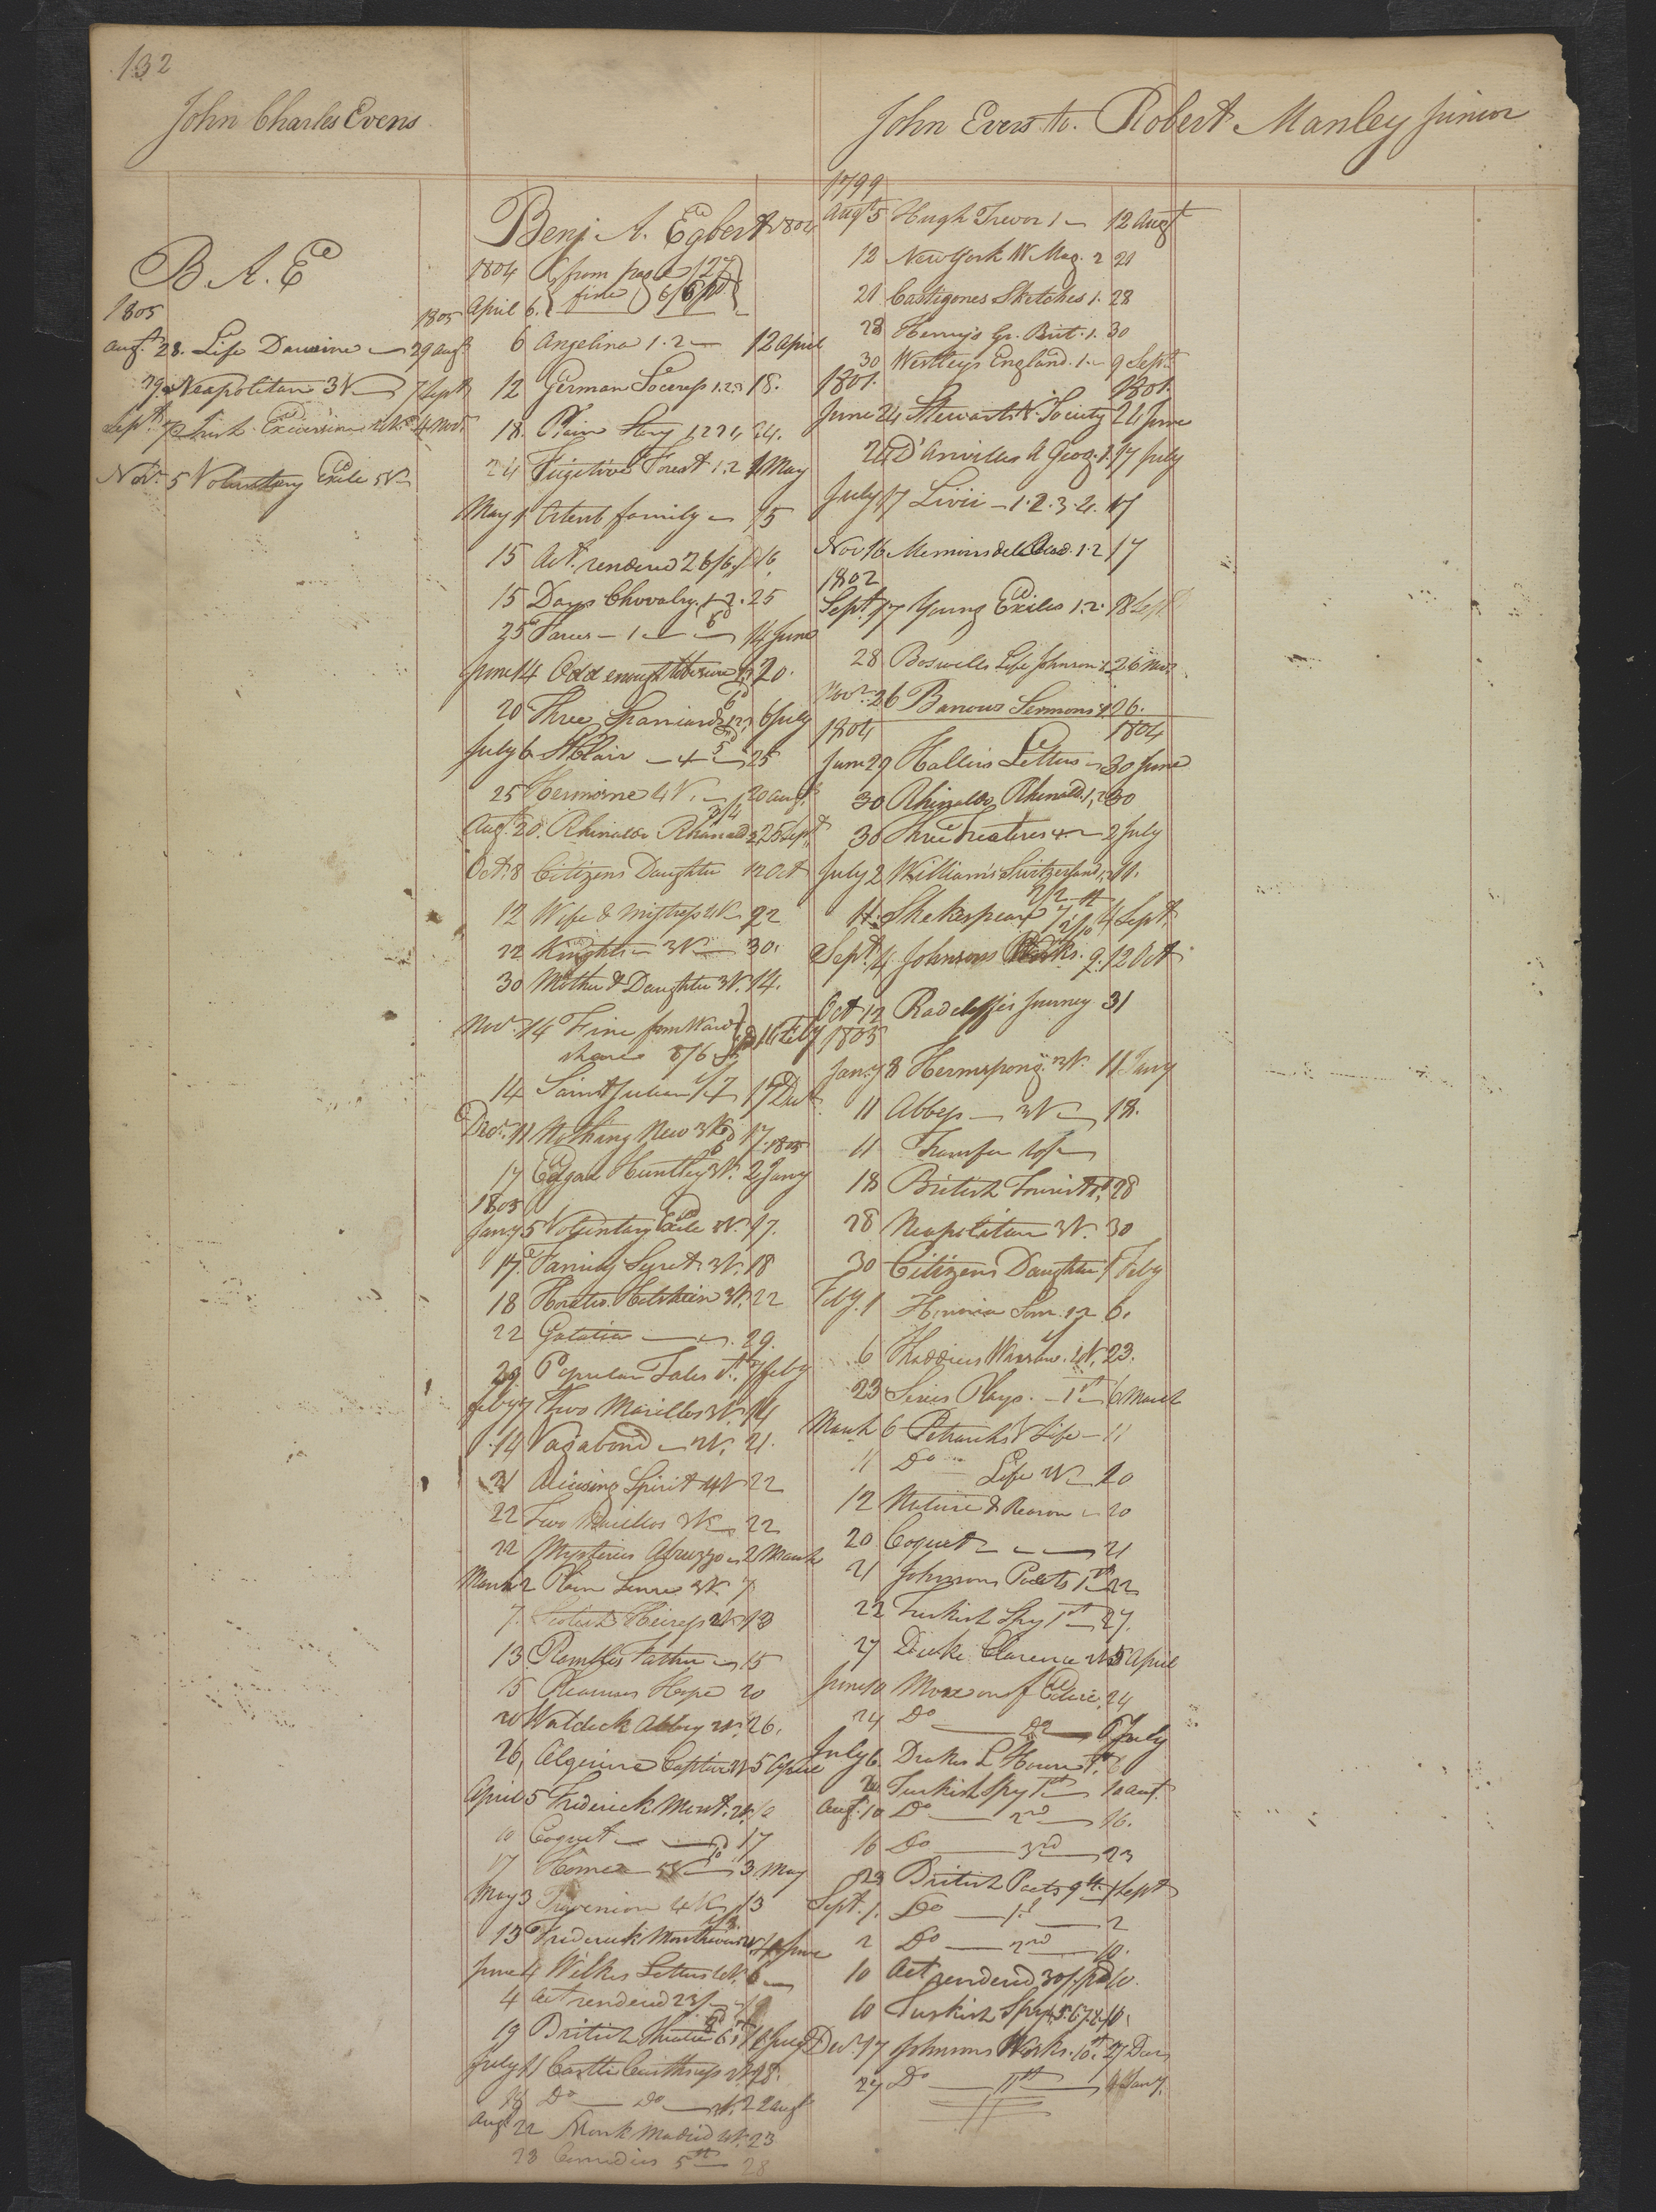 132
John Charles Evens
B. A. E
1805
1805
Augt 28. Life Dauvine — 29 augt
29. Neapolitan 3V — 7 Sept
Sept. 7 Irish Excursion 4 Nov.
Nov. 5 Voluntary Exile 5V
Benj. A. Egbert 1804
1804 from page 127
April 6. fine 6/6 pd
6 Angelina 1.2 — 12 april
12 German Soceress 1.2.3 18.
18. Plain Story 1.2.3.4 24.
24 Fugitive Forest 1.2 1 May
May 1 Ortent family — 15
15 Act. rendered 26/6 16
15 Days Chivalry 1.2. 25
25 Farces — 1 — 6d — 14 June
June 14 Odd enough tobesure 1.2 20.
20 Three Spaniards 1.2 6 July
July 6 St Clair — 25
25 Hermione 4V. — 20 augt
3/4
Augt. 20. Rhinaldo Rhinald 2 25 Sept
Oct. 8 Citizens Daughter 12 Oct
12 Wife & Mistress 4V 22
22 Knights — 3V — 30.
30 Mother & Daughter 3V. 14.
Nov. 14 Fine from Ward
shares 8/6
14 Saint Julian 1/7 17 Dec
Decr. 11 Nothing New 3V 17. 1805
17 Edgar Huntley 3V. 2 Jany
1805
Jany 5 Voluntary Exile 5V. 17.
17. Family Secret 3V. 18
18 Horatio Holstein 3V. 22
22 Galatia — 29.
29 Popular Tales 7 feby
feby 7 Two Marillos 3V. 14
14 Vagabond — 2V. 21.
21 Advising Spirit 4V 22
22 Two Marillos 3V — 22
22 Mysterious Abruzzo — 2 March
March 2 Plain Sense 3V. 7
7. Scotish Heiress 2V 13
13 Rambles Father — 15
15 Pleasures Hope 20
20 Waldeck Abbey 2V. 26.
26, Algerine Captive 2V 5 April
April 5 Frederick Mont. 2V. 10
10 Coquet — 17
17 Homer — 5V — 3 May
May 3 Trevenion 4V. 13
13 Frederick Montravers 2V 4 June
June 4 Wilkes Letters 4V. 6 —
4 act rendered 23/
19 British Theatre 6
July 11 Castle Caithness 2V. 18.
18 Do — Do — 2V. 22 augt
Augt 22 Monk Madrid 2V. 23
23 Comedies 5th 28
John Evers to. Robert Manley Junior
1799
Augt 5 Hugh Trevor 1 — 12 Augt
12 New York W Mag. 2 21
21 Castigones Sketches 1. 28
28 Henry's Gr. Brit. 1. 30
30 Westleys England. 1. — 9 Sept.
1801. 1801.
June 24 Stewarts V. Society 24 June
24 D'Anvilles A Geog. 1. 17 July
July 17 Livii — 1.2.3.4. 17
Nov 16 Memoirs de l Acad. 1.2 17
1802
Sept. 17 Young Exiles 1.2. 28 Sept.
28 Boswells Life Johnson 1. 26 Nov.
Novr. 26 Barrows Sermons 1. 26.
1804 1804
June 29 Hallers Letters — 30 June
30 Rhinaldo, Rhinald. 1, 2 30
30 Three Treatises — 2 July
July 2 Williams Switzerland 1.2 11.
11. Shakespeare 4 Sept
Sept. 4 Johnsons Works. 9. 12 Oct
Oct 12 Radcliffes Journey 31
1805
Jany 8 Hermsprong 3V. 11 Jany
11 Abbess — 3V — 18.
11 Transfer 10/ —
18 British Tourist 28
28 Neapolitan 3V. 30
30 Citizens Daughter 1 Feby
Feby. 1 Honoria Som. 1.2 6.
6 Thaddeus Warsaw. 4V. 23.
23 Series Plays. — 1st — 6 March
March 6 Petrarchs V Life — 11
11 Do — Life 2V — 20
12 Nature & Reason — 20
20 Coquet — — 21
21 Johnsons Poets 1st 22
22 Turkish Spy 1st 27.
27 Duke Clarence 2V 5 April
June 10 Moreton of Edu. 24
24 Do — Do — 6 July
July 6. Drakes L Hours 1st.
Turkish Spy 1st — 10 aut.
Aug. 10 Do — 2nd — 16.
16 Do — 3rd — 23
23 British Poets 9th. 1 Sept
Sept. 1. Do — 1st — 2
2 Do — 2nd — 10.
10 Act rendered 30/ pd 10.
10 Turkish Spy 4.5.6.7.8. 10.
Decr. 17 Johnsons Works. 10th. 27 Decr
27 Do — 11th — 4 Jany.